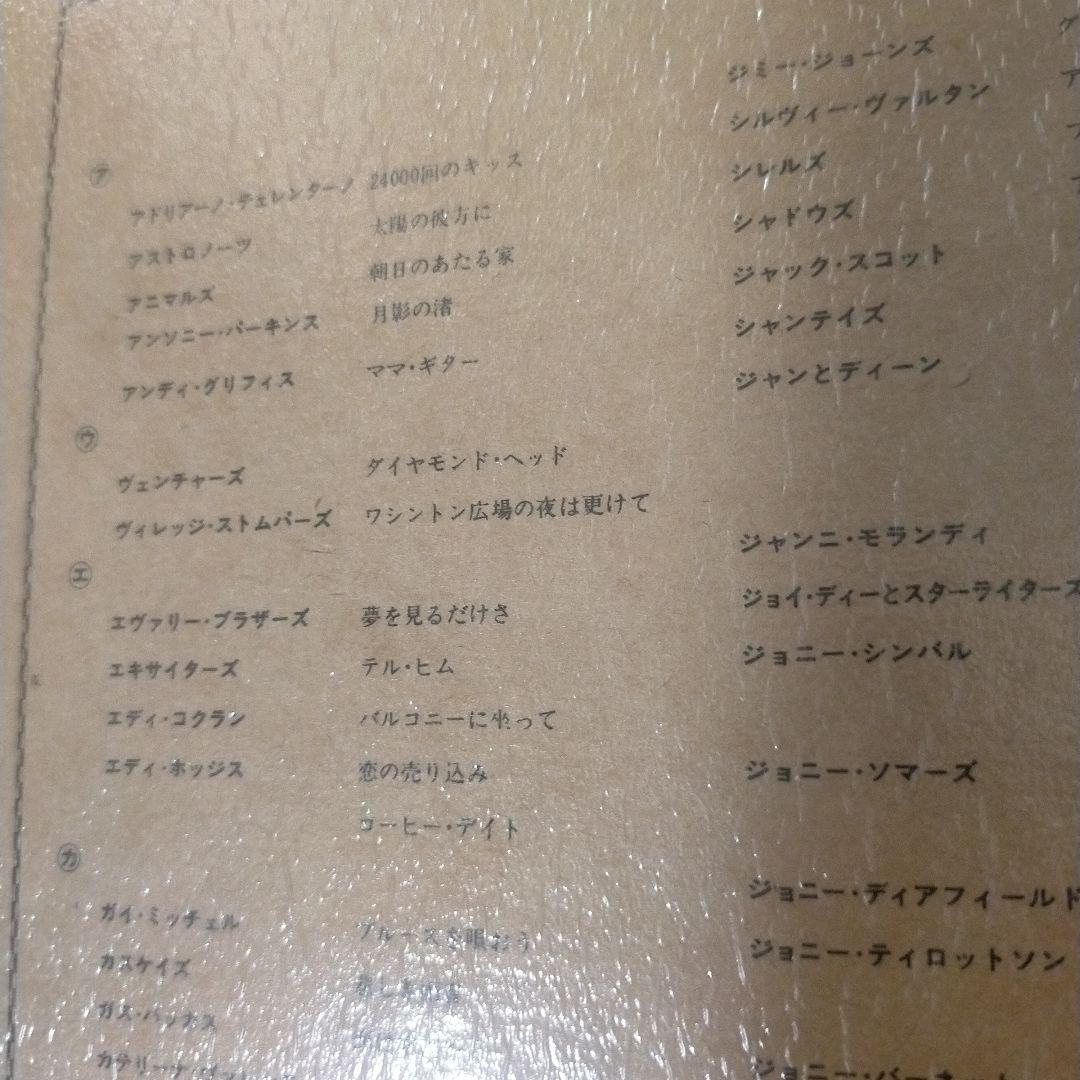 ア
アドリアーノ・チェレンターノ 24000回のキッス
アストロノーツ 太陽の彼方に
アニマルズ 朝日のあたる家
アンソニー・パーキンス 月影の渚
アンディ・グリフィス ママ・ギター
ウ
ヴェンチャーズ ダイヤモンド・ヘッド
ヴィレッジ・ストムパーズ ワシントン広場の夜は更けて
エ
エヴァリー・ブラザーズ 夢を見るだけさ
エキサイターズ テル・ヒム
エディ・コクラン バルコニーに坐って
エディ・ホッジス 恋の売り込み
コーヒー・デイト
カ
ガイ・ミッチェル ブルースを唄おう
カスケイズ
ガス・バッカス
カテリーナ・
ジミー・ジョーンズ
シルヴィー・ヴァルタン
シレルズ
シャドウズ
ジャック・スコット
シャンテイズ
ジャンとディーン
ジャンニ・モランディ
ジョイ・ディーとスターライターズ
ジョニー・シンバル
ジョニー・ソマーズ
ジョニー・ディアフィールド
ジョニー・ティロットソン
ジョニー・